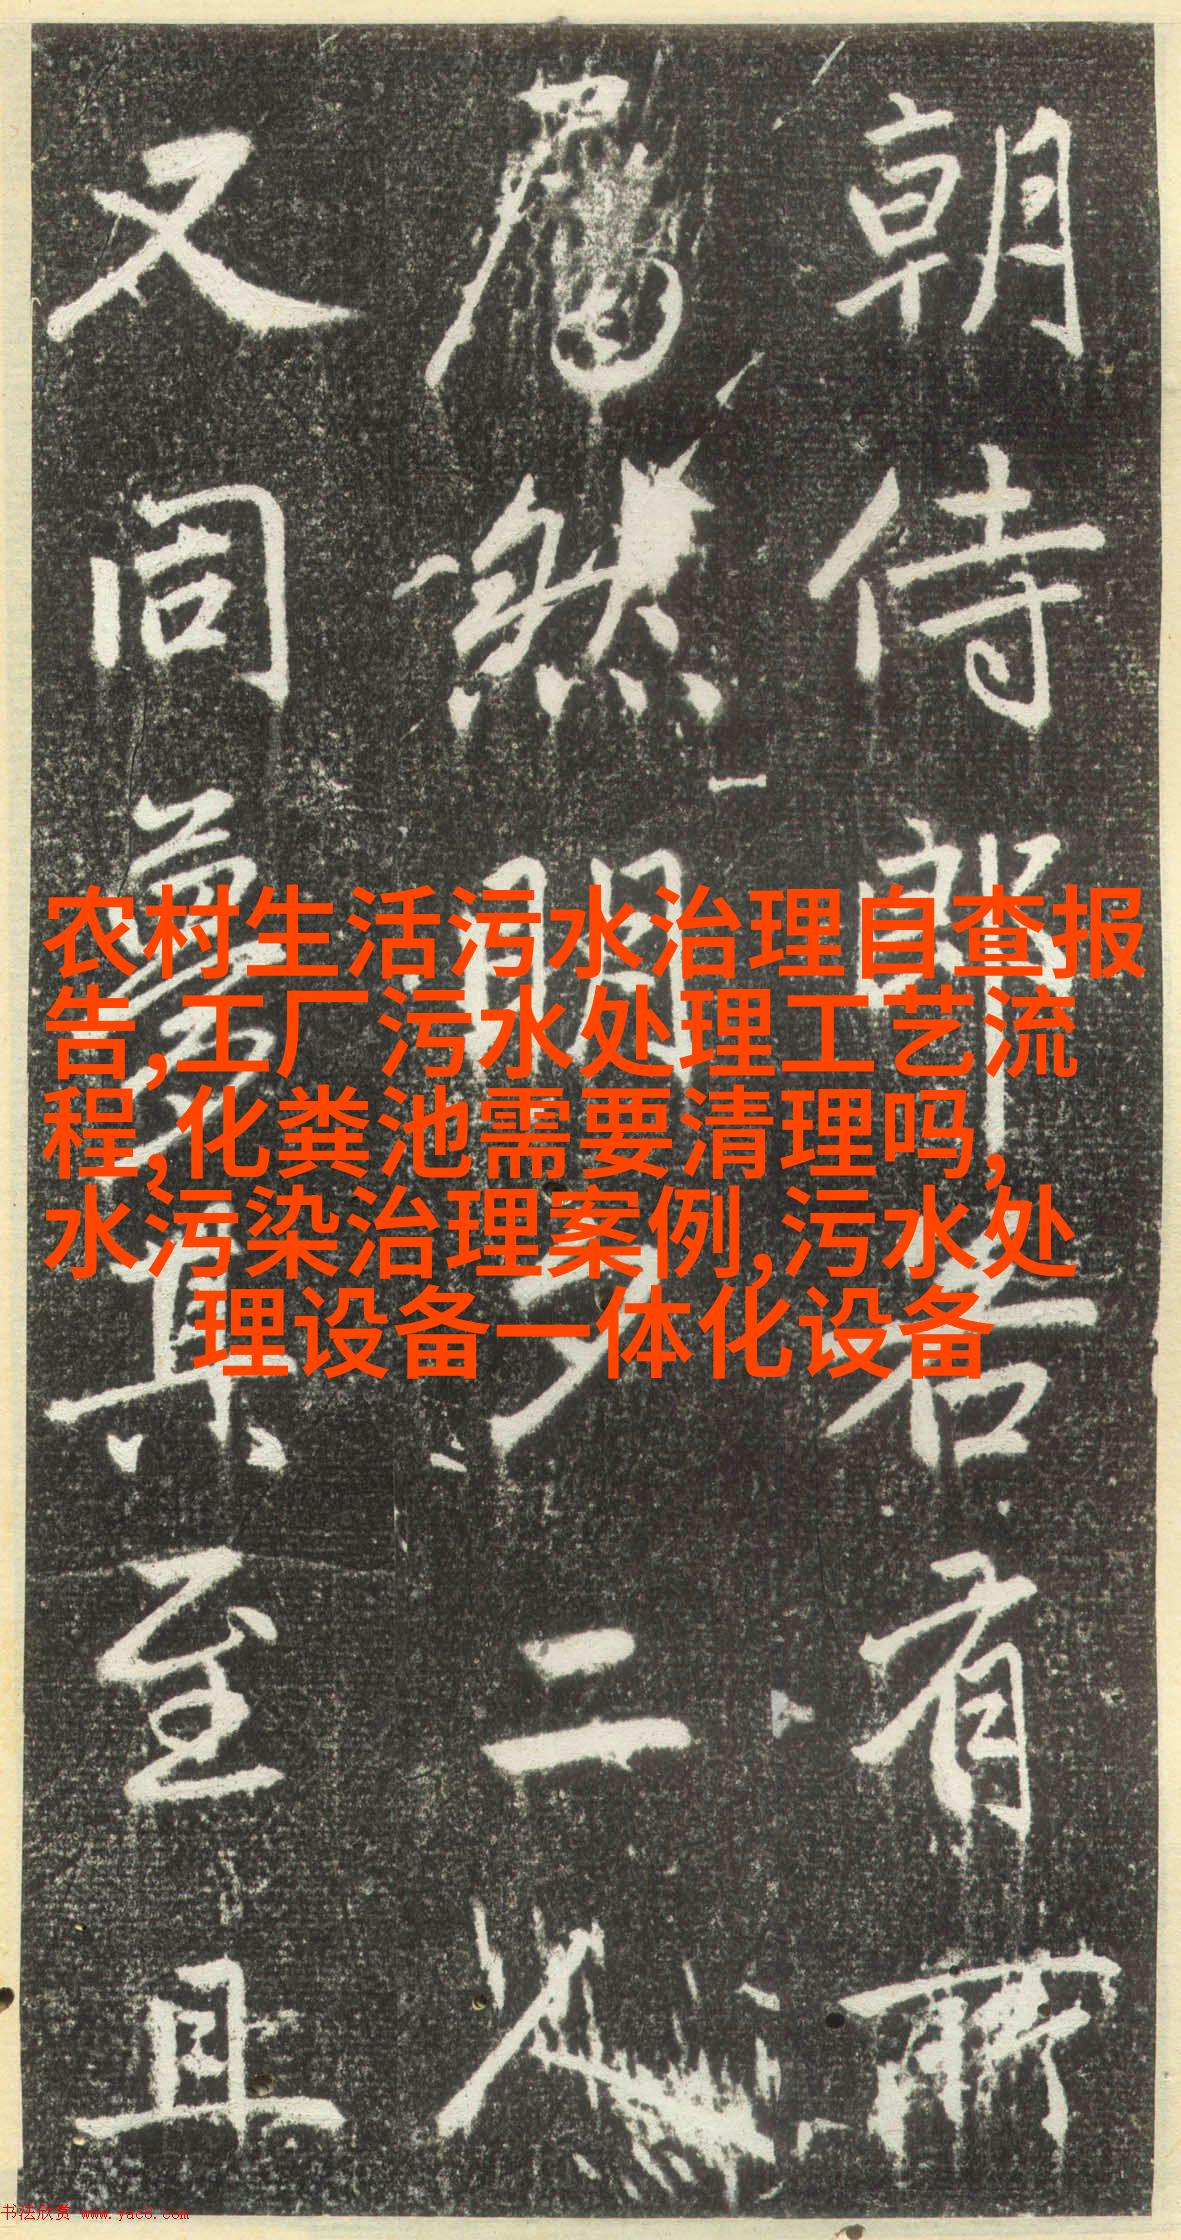 朝侍郎若有所
然明夕二人
又同夢其至且
农村生活污水治理自查报
告,工厂污水处理工艺流
程,化粪池需要清理吗,
水污染治理案例,污水处
理设备一体化设备
书法欣赏 www.yac8.com